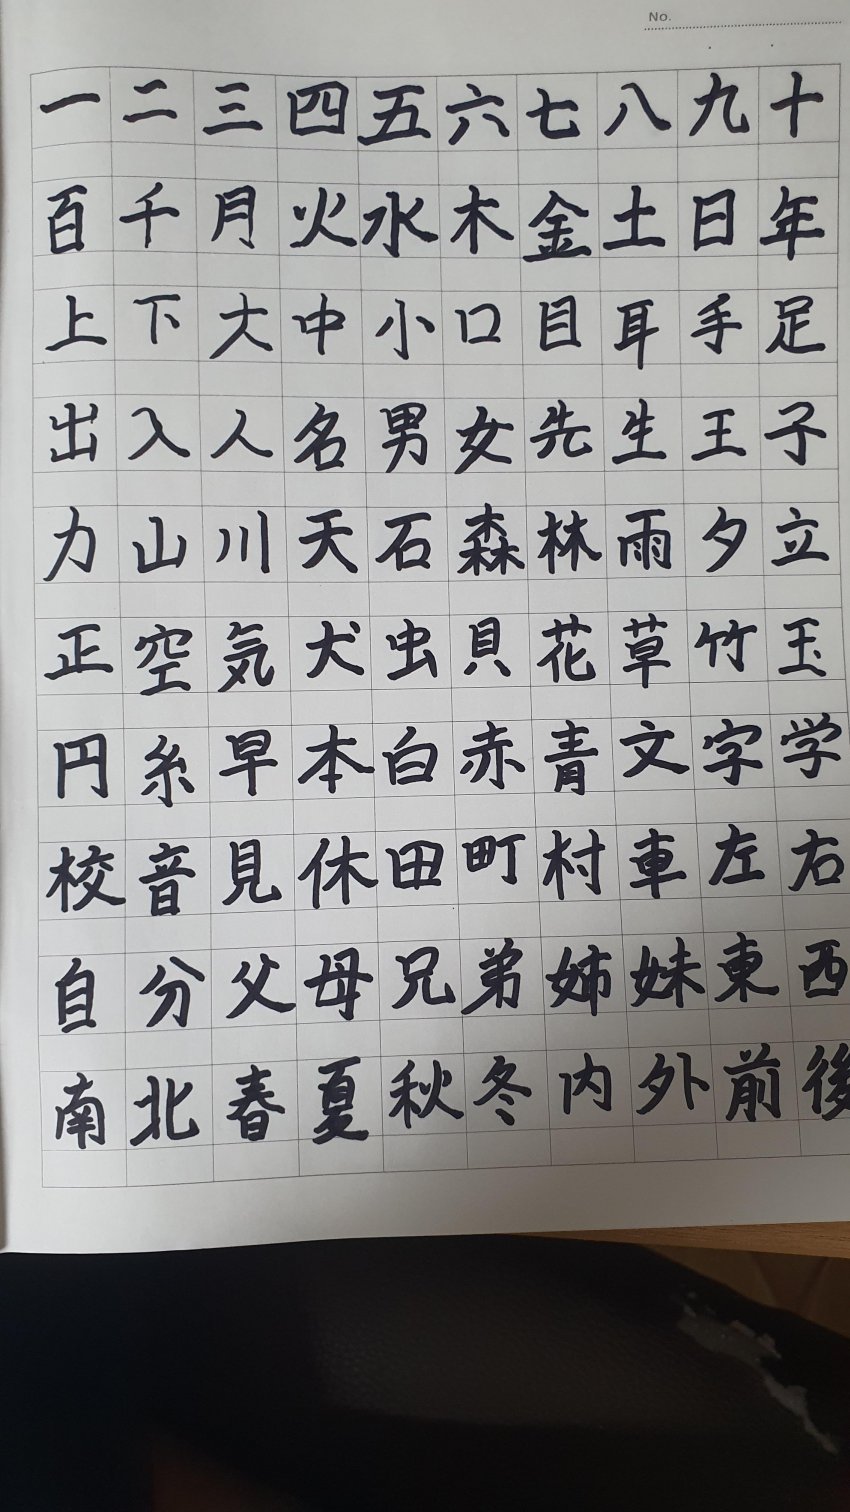 No.
一二三四五六七八九十
百千月火水木金土日年
上下大中小口目耳手足
出入人名男女先生王子
力山川天石森林雨夕立
正空気犬虫貝花草竹玉
円糸早本白赤青文字学
校音見休田町村車左右
自分父母兄弟姉妹東西
南北春夏秋冬内外前後